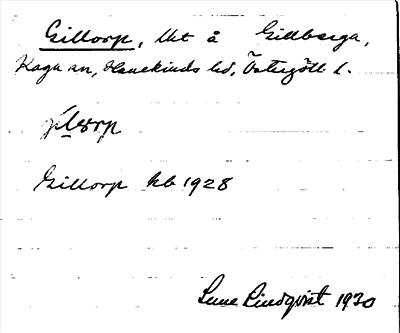 Gillorp, lht å Gillberga,
Kaga sn, Hanekinds hd, Östergötl l.
Gillorp kb 1928
Sune Lindqvist 1930